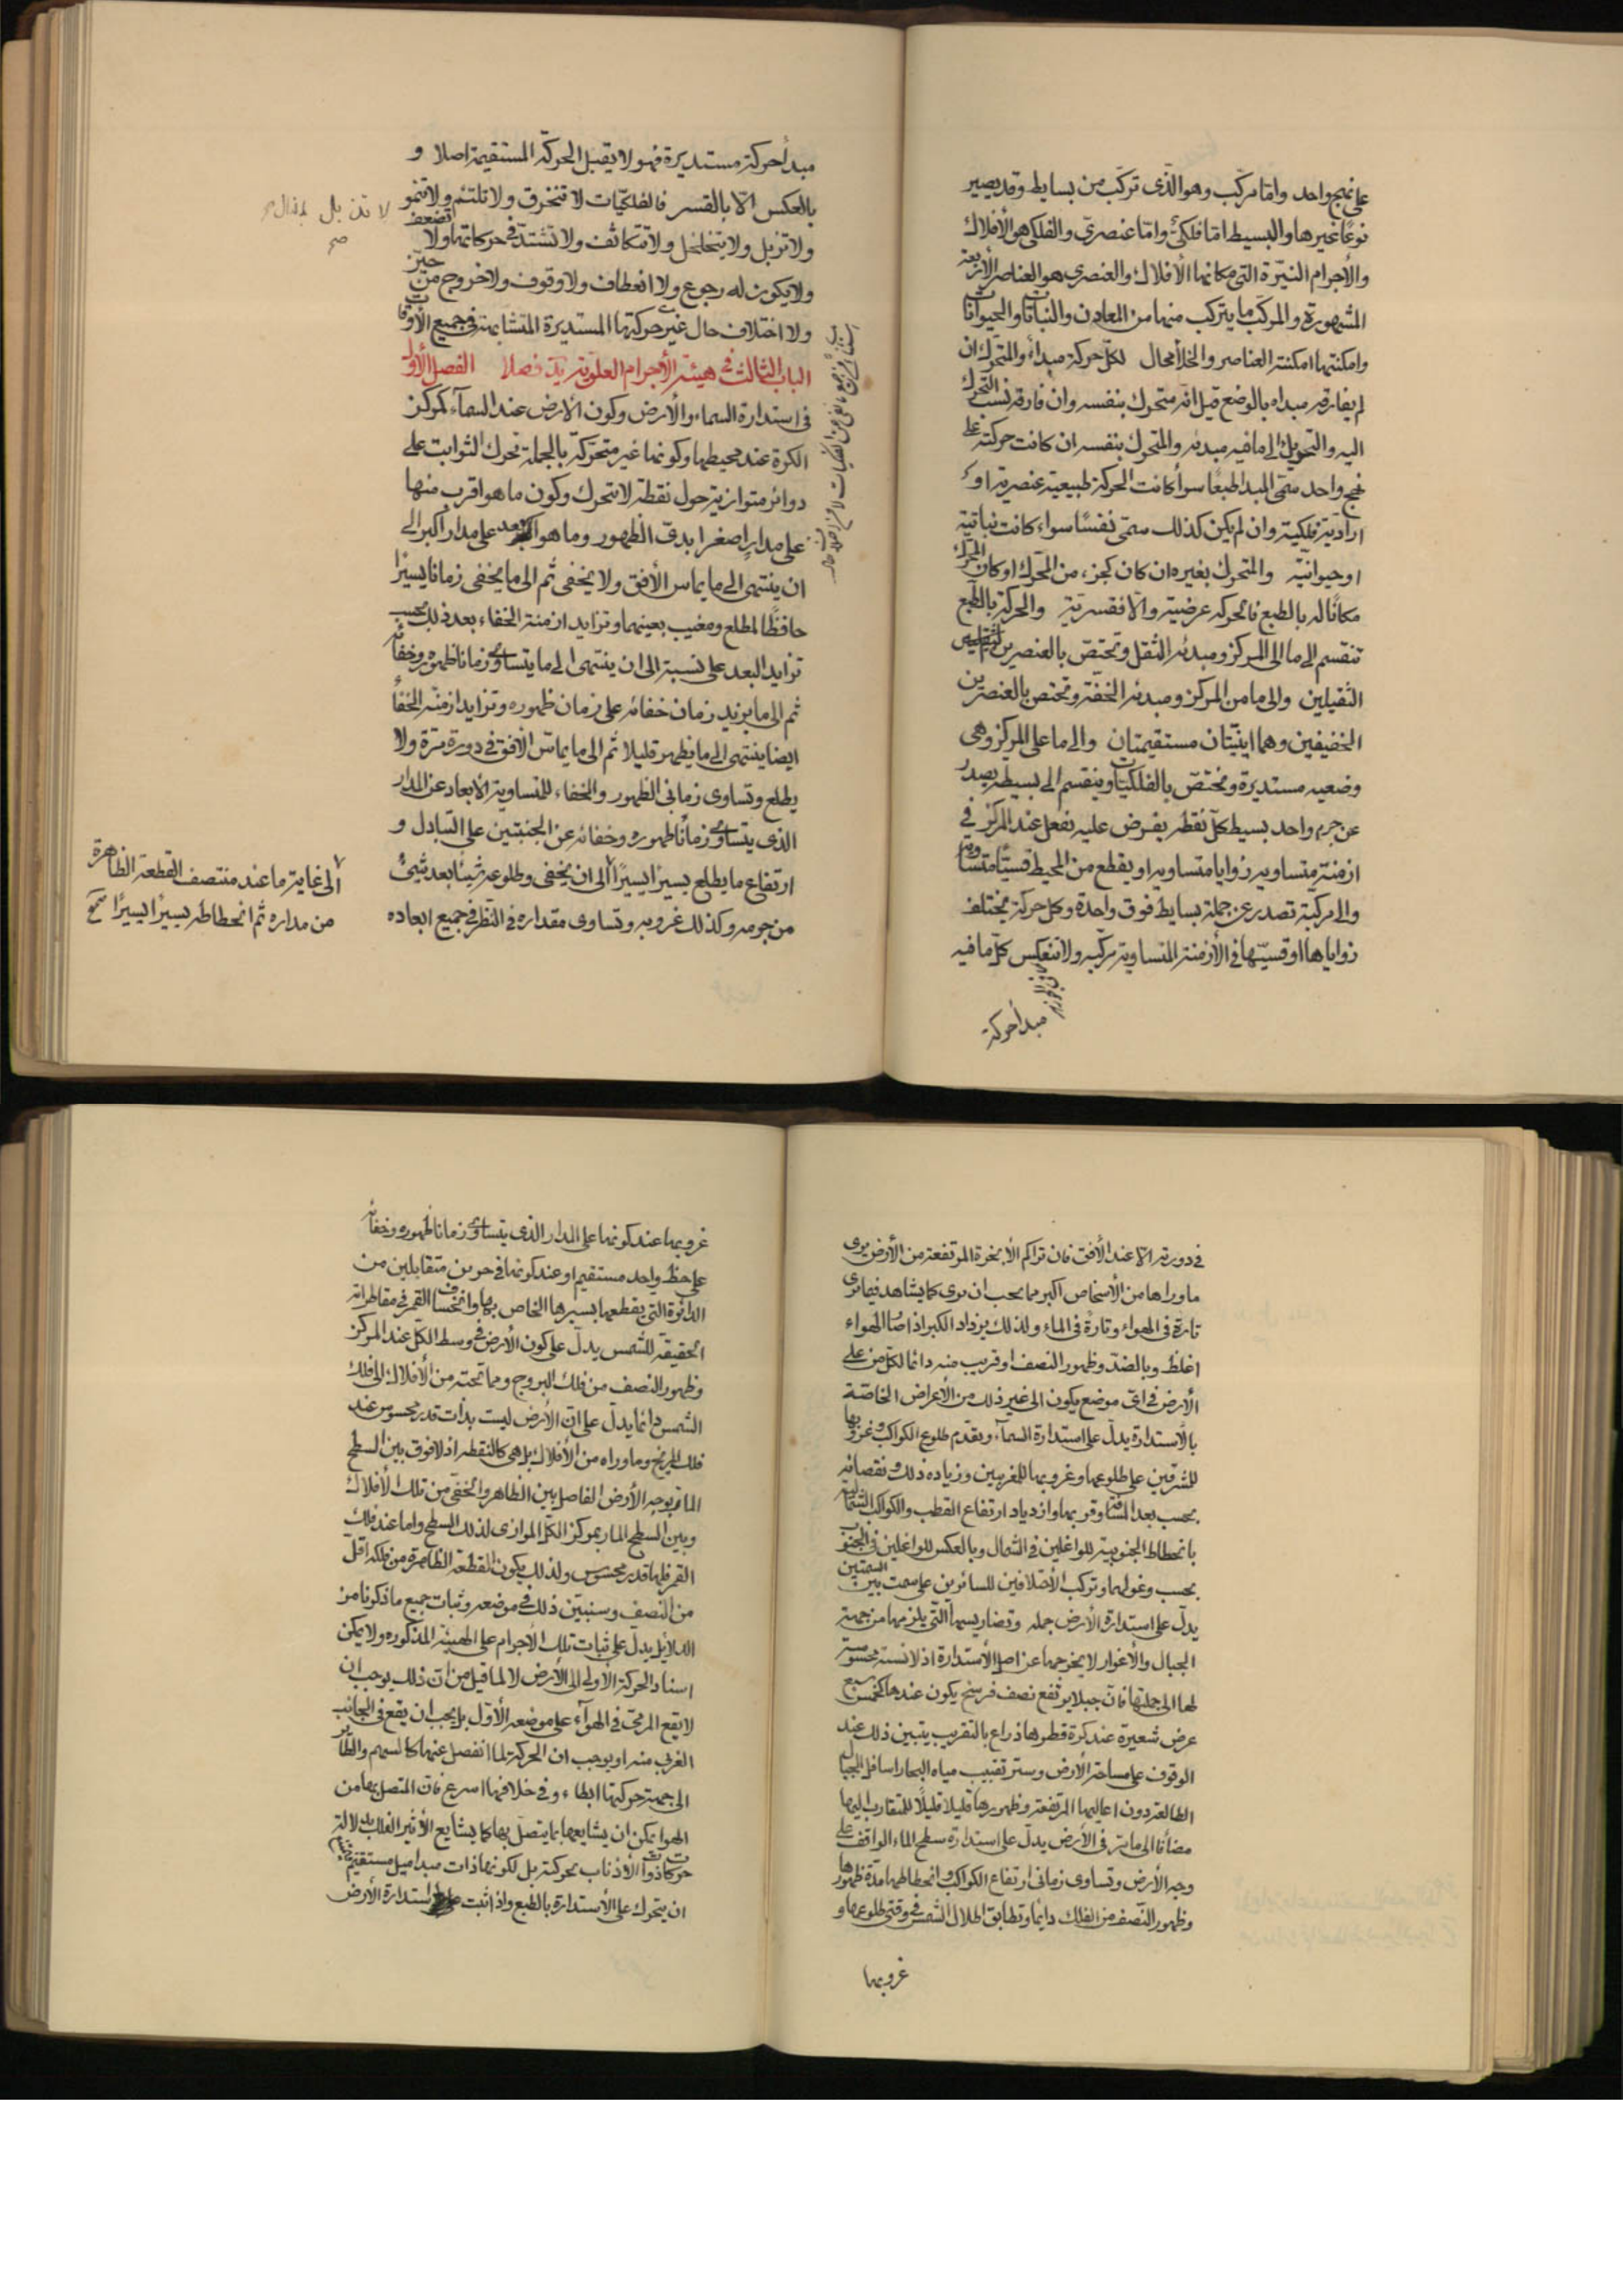 على نهج واحد واما مركب وهو الذى تركب من بسايط وقد يصير
نوعًا غيرها والبسيط امّا فلكىّ وامّا عنصرىّ والفلكى هو الأفلاك
والأجرام النيّرة التى مكانها الأفلاك والعنصرى هو العناصر الأربعة
المشهورة والمركب ما يتركب منها من المعادن والنباتات والحيوانات
وامكنتها امكنة العناصر والخلأ محال لكلّ حركة مبدأ والمتحرك ان
لم يفارقه مبداه بالوضع قيل انّه متحرك بنفسه وان فارقه نسب التحرك
اليه والتحريك الى ما فيه مبدئه والمتحرك بنفسه ان كانت حركته على
نهج واحد سمّى المبدا طبعًا سوأ كانت الحركة طبيعية عنصرية او
اراديّة فلكية وان لم يكن كذلك سمّى نفسًا سواء كانت نباتية
او حيوانيّة والمتحرك بغيره ان كان كجزء من المحرك او كان المحرك
مكانًا له بالطبع فالحركه عرضية والّا فقسريّة والحركة بالطبع
تنقسم الى ما الى المركز ومبدئه الثقل وتختصّ بالعنصرين
الثقيلين والى ما من المركز ومبدئه الخفّة وتختص بالعنصرين
الخفيفين وهما اينيّتان مستقيمتان والى ما على المركز وهى
وضعيه مستديرة وتختصّ بالفلكيّات وينقسم الى بسيطه يصدر
عن جرم واحد بسيط كلّ نقطه يفرض عليه يفعل عند المركز فى
ازمنة متساويه زوايا متساويه او يقطع من المحيط قسيًّا متساوية
والى مركبّة تصدر عن جملة بسايط فوق واحدة وكل حركة يختلف
زواياها او قسيّها فى الأزمنة المتساوية مركبه ولا تنعكس كلّ ما فيه
مبدأ حركة
مبدأ حركة مستديرة فهو لا يقبل الحركة المستقيمة اصلا و
بالعكس الّا بالقسر فالفلكيّات لا تنخرق ولا تلتئم ولا تنمو
ولا تزبل ولا يتخلخل ولا تتكاثف ولا تشتدّ فى حركاتها ولا تضعف
ولا يكون له رجوع ولا انعطاف ولا وقوف ولا خروج من حيّز
ولا اختلاف حال غير حركتها المستديرة المتشابهة فى جميع الأوقات
الباب الثالث فى هيئة الأجرام العلوية يد فصلا الفصل الأول
فى استدارة السماء والأرض وكون الارض عند السمآء كمركز
الكرة عند محيطها وكونها غير متحركة بالجملة تحرك الثوابت على
دوائر متوازية حول نقطة لا تتحرك وكون ما هو اقرب منها
على مدار اصغر ابدىّ الظهور وما هو ابعد على مدار اكبر الى
ان ينتهى الى ما يماس الأفق ولا يخفى ثم الى ما يخفى زمانا يسيرًا
حافظًا لمطلع ومغيب بعينهما وتزايد ازمنة الخفاء بعد ذلك بحسب
تزايد البعد على نسبة الى ان ينتهى الى ما يتساوى زمانا ظهوره وخفائه
ثم الى ما يزيد زمان خفائه على زمان ظهوره وتزايد ازمنة الخفأ
ايضا ينتهى الى ما يظهر قليلا ثم الى ما يماسّ الأفق فى دورة مرّة ولا
يطلع وتساوى زمانى الظهور والخفاء للمتساوية الأبعاد عن المدار
الذى يتساوى زمانا ظهوره وخفائه عن الجنبتين على التبادل و
ارتفاع ما يطلع يسيرًا يسيرًا الى ان يخفى وطلوعه شيئا بعد شئ
من جرمه وكذلك غروبه وتساوى مقداره فى النظر فى جميع ابعاده
لا تذبل
صح
الى غاية ما عند منتصف القطعة الظاهرة
من مداره ثم انحطاطه يسيرًا يسيرًا صح
فى دورته الا عند الأفق فان تراكم الأبخرة المرتفعة من الأرض يرى
ما وراها من الأشخاص اكبر مما يجب ان يرى كما يشاهد فيما يرى
تارة فى الهواء وتارة فى الماء ولذلك يزداد الكبر اذا صار الهواء
اغلظ وبالضدّ وظهور النصف او قريب منه دائما لكلّ من على
الأرض فى اىّ موضع يكون الى غير ذلك من الأعراض الخاصّة
بالأستدارة يدلّ على استدارة السمآء ويقدم طلوع الكواكب وغروبها
للمشرقين على طلوعها وغروبها للمغربيين وزيادة ذلك ونقصانه
بحسب بعد المسافة وقربها وازدياد ارتفاع القطب والكواكب الشمالية
بانحطاط الجنوبية للواغلين فى الشمال وبالعكس للواغلين فى الجنوب
بحسب وغولهما وتركب الأختلافين للسائرين على سمت بين السمتين
يدلّ على استدارة الأرض جمله وتضاريسها الّتى يلزمها من جهة
الجبال والأغوار لا يخرجها عن اصل الأستدارة اذ لا نسبة محسوسة
لها الى جملتها فانّ جبلا يرتفع نصف فرسخ يكون عندها كخمس سبع
عرض شعيرة عند كرة قطرها ذراع بالتقريب يتبين ذلك عند
الوقوف على مساحة الأرض وستر تقبيب مياه البحار اسافل الجبال
الطالعة دون اعاليها المرتفعة وظهورها قليلا قليلًا للمتقارب اليها
مضافا الى ما مرّ فى الأرض يدلّ على استدارة سطح الماء الواقف على
وجه الأرض وتساوى زمانى ارتفاع الكواكب وانحطاطها مدة ظهورها
وظهور النصف من الفلك دايما وتطابق اظلال الشمس فى وقتى طلوعها و
غروبها
غروبها عند كونها على المدار الذى يتساوى زمانا ظهوره وخفائه
على خط واحد مستقيم او عند كونها فى جزءين متقابلين من
الدائرة التى يقطعها بسيرها الخاص بها وانخساف القمر فى مقاطراته
الحقيقة للشمس يدلّ على كون الأرض فى وسط الكلّ عند المركز
وظهور النصف من فلك البروج وما تحته من الأفلاك الى فلك
الشمس دائما يدلّ على انّ الأرض ليست بذات قدر محسوس عند
فلك المريخ وما وراه من الأفلاك بل هى كالنقطة اذ لا فرق بين السطح
المار بوجه الأرض الفاصل بين الظاهر والخفىّ من تلك الأفلاك
وبين السطح المار بمركز الكلّ الموازى لذلك السطح واما عند فلك
القمر فلها قدر محسوس ولذلك يكون القطعة الظاهرة من فلكه اقلّ
من النصف وسنبيّن ذلك فى موضعه وثبات جميع ما ذكرنا من
الدلايل يدلّ على ثبات تلك الأجرام على الهيئة المذكوره ولا يمكن
اسناد الحركة الأولى الى الأرض لا لما قيل من انّ ذلك يوجب ان
لا يقع المرمىّ فى الهوآء على موضعه الأوّل بل يجب ان يقع فى الجانب
الغربى منه او يوجب ان الحركة لما انفصل عنها كالسهم والطائر
الى جهة حركتها ابطاء وفى خلافها اسرع فان المتصل بها من
الهوا يمكن ان يشايعها بما يتصل بها كما يشايع الأثير الفلك بدلالة
حركات ذوات الأذناب بحركته بل لكونها ذات مبدا ميل مستقيم
ان يتحرك على الأستدارة بالطبع واذ اثبت استدارة الأرض